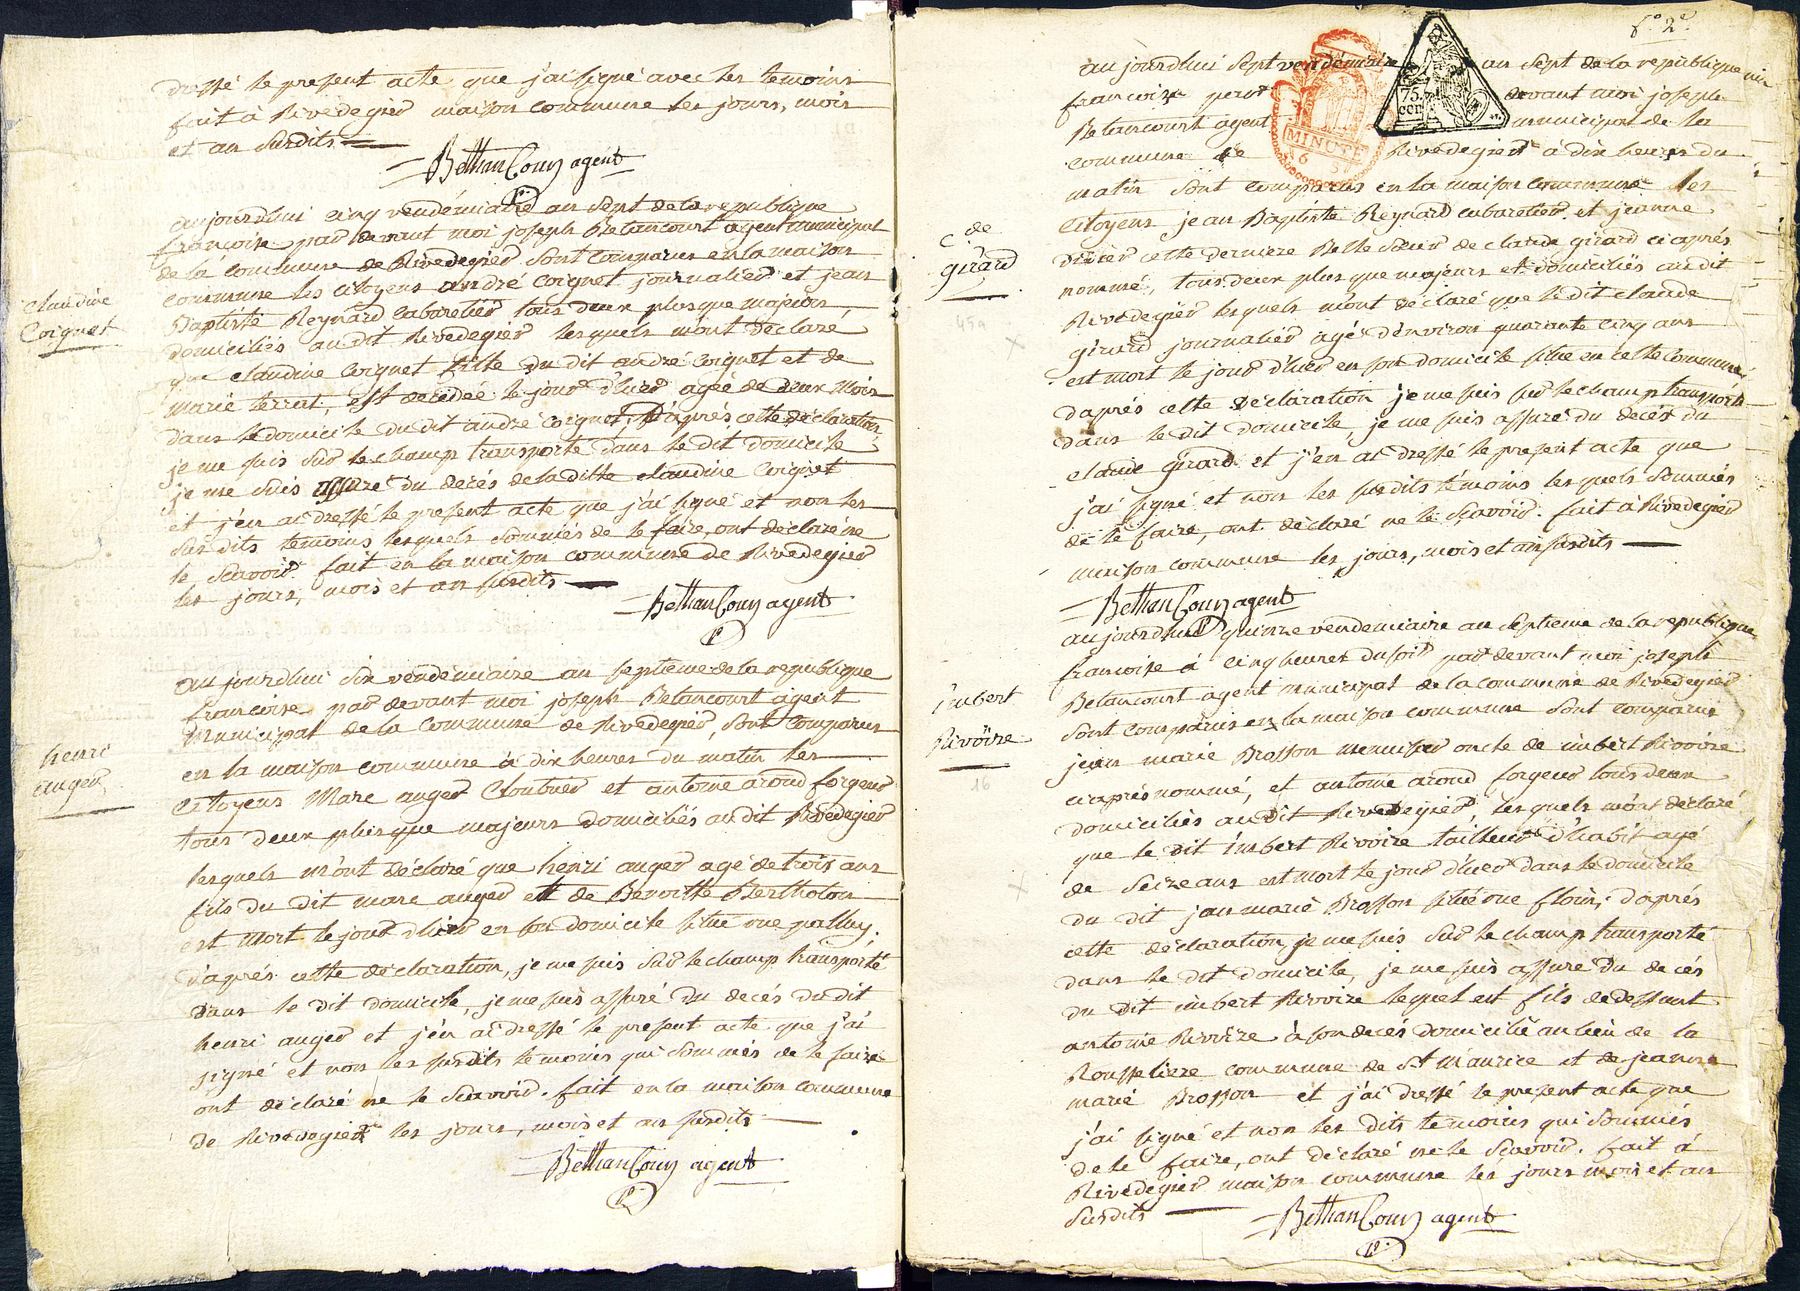 dressé le present acte que j'ai signé avec les temoins
fait à Rivedegier maison commune les jours, mois
et an susdits
BethanCourt agent
aujourdhui cinq vendémiaire an sept de la republique
francoise par devant moi joseph Betancourt agent municipal
de la commune de Rivedegier sont comparus en la maison
commune les citoyens andré Coignet journalier et jean
Baptiste Reynard Cabaretier tous deux plus que majeurs
domiciliés audit Rivedegier lesquels m'ont déclaré
claudine
Coignet
que claudine Coignet fille du dit andré Coignet et de
marie terrest, est décédée le jour d'hier agée de deux mois
dans le domicile du dit andré Coignet, D'après cette déclaration
je me suis sur le champ transporté dans le dit domicile
je me suis assuré du decés de la ditte claudine Coignet
et j'en ai dressé le present acte que j'ai signé et non les
susdits temoins lesquels sommés de le faire, ont déclaré ne
le scavoir. fait en la maison commune de Rivedegier
les jours, mois et an susdits
BethanCourt agent
aujourdhui six vendémiaire an septieme de la republique
francoise, par devant moi joseph Betancourt agent
municipal de la commune de Rivedegier, sont comparus
henri
auger
en la maison commune à dix heures du matin les
citoyens Marc auger Cloutier et antoine aroud forgeur
tous deux plus que majeurs domiciliés au dit Rivedegier
lesquels m'ont déclaré que henri auger agé de trois ans
fils du dit marc auger et de Benoitte Bertholon
est mort le jour d'hier en son domicile situé rue palluy.
d'après cette déclaration, je me suis sur le champ transporté
dans le dit domicile, je me suis assuré du decés du dit
henri auger et j'en ai dressé le present acte que j'ai
signé et non les susdits temoins qui sommés de le faire
ont déclaré ne le scavoir. fait en la maison commune
de Rivedegier les jours, mois et an susdits
BethanCourt agent
fo 2e
MINUTE
75
cen
aujourdhui sept vendémiaire an sept de la republique
francoise par devant moi joseph
Betancourt agent municipal de la
commune de Rivedegier à dix heures du
matin sont comparus en la maison commune les
citoyens jean Baptiste Reynard cabaretier et jeanne
c. de
girard
cette derniere Belle sœur de claude girard ci après
nommé, tous deux plus que majeurs et domiciliés audit
Rivedegier lesquels m'ont déclaré que le dit claude
45a
girard journalier agé d'environ quarante cinq ans
est mort le jour d'hier en son domicile situé en cette commune
d'aprés cette déclaration je me suis sur le champ transporté
dans le dit domicile, je me suis assuré du decés du
claude girard et j'en ai dressé le present acte que
j'ai signé et non les susdits témoins lesquels sommés
de le faire, ont déclaré ne le scavoir. fait à Rivedegier
maison commune les jours, mois et an susdits
BethanCourt agent
aujourdhui quinze vendemiaire an septieme de la republique
francoise à cinq heures du soir par devant moi joseph
imbert
Rivoire
16
Betancourt agent municipal de la commune de Rivedegier
sont comparus en la maison commune sont comparus
jean marie Brosson menuisier oncle de imbert Rivoire
ci après nommé, et antoine aroud forgeur tous deux
domiciliés au dit Rivedegier, lesquels m'ont déclaré
que le dit imbert Rivoire tailleur d'habit agé
de seize ans est mort le jour d'hier dans le domicile
du dit jean marie Brosson situé rue floin, d'aprés
cette déclaration, je me suis sur le champ transporté
dans le dit domicile, je me suis assuré du decés
du dit imbert Rivoire lequel est fils de deffunt
antoine Rivoire à son decés domicilié au lieu de la
Rousseliere commune de St Maurice et de jeanne
marie Brosson et j'ai dressé le present acte que
j'ai signé et non les dits temoins qui sommés
de le faire, ont déclaré ne le scavoir. fait à
Rivedegier maison commune les jours mois et an
susdits
BethanCourt agent